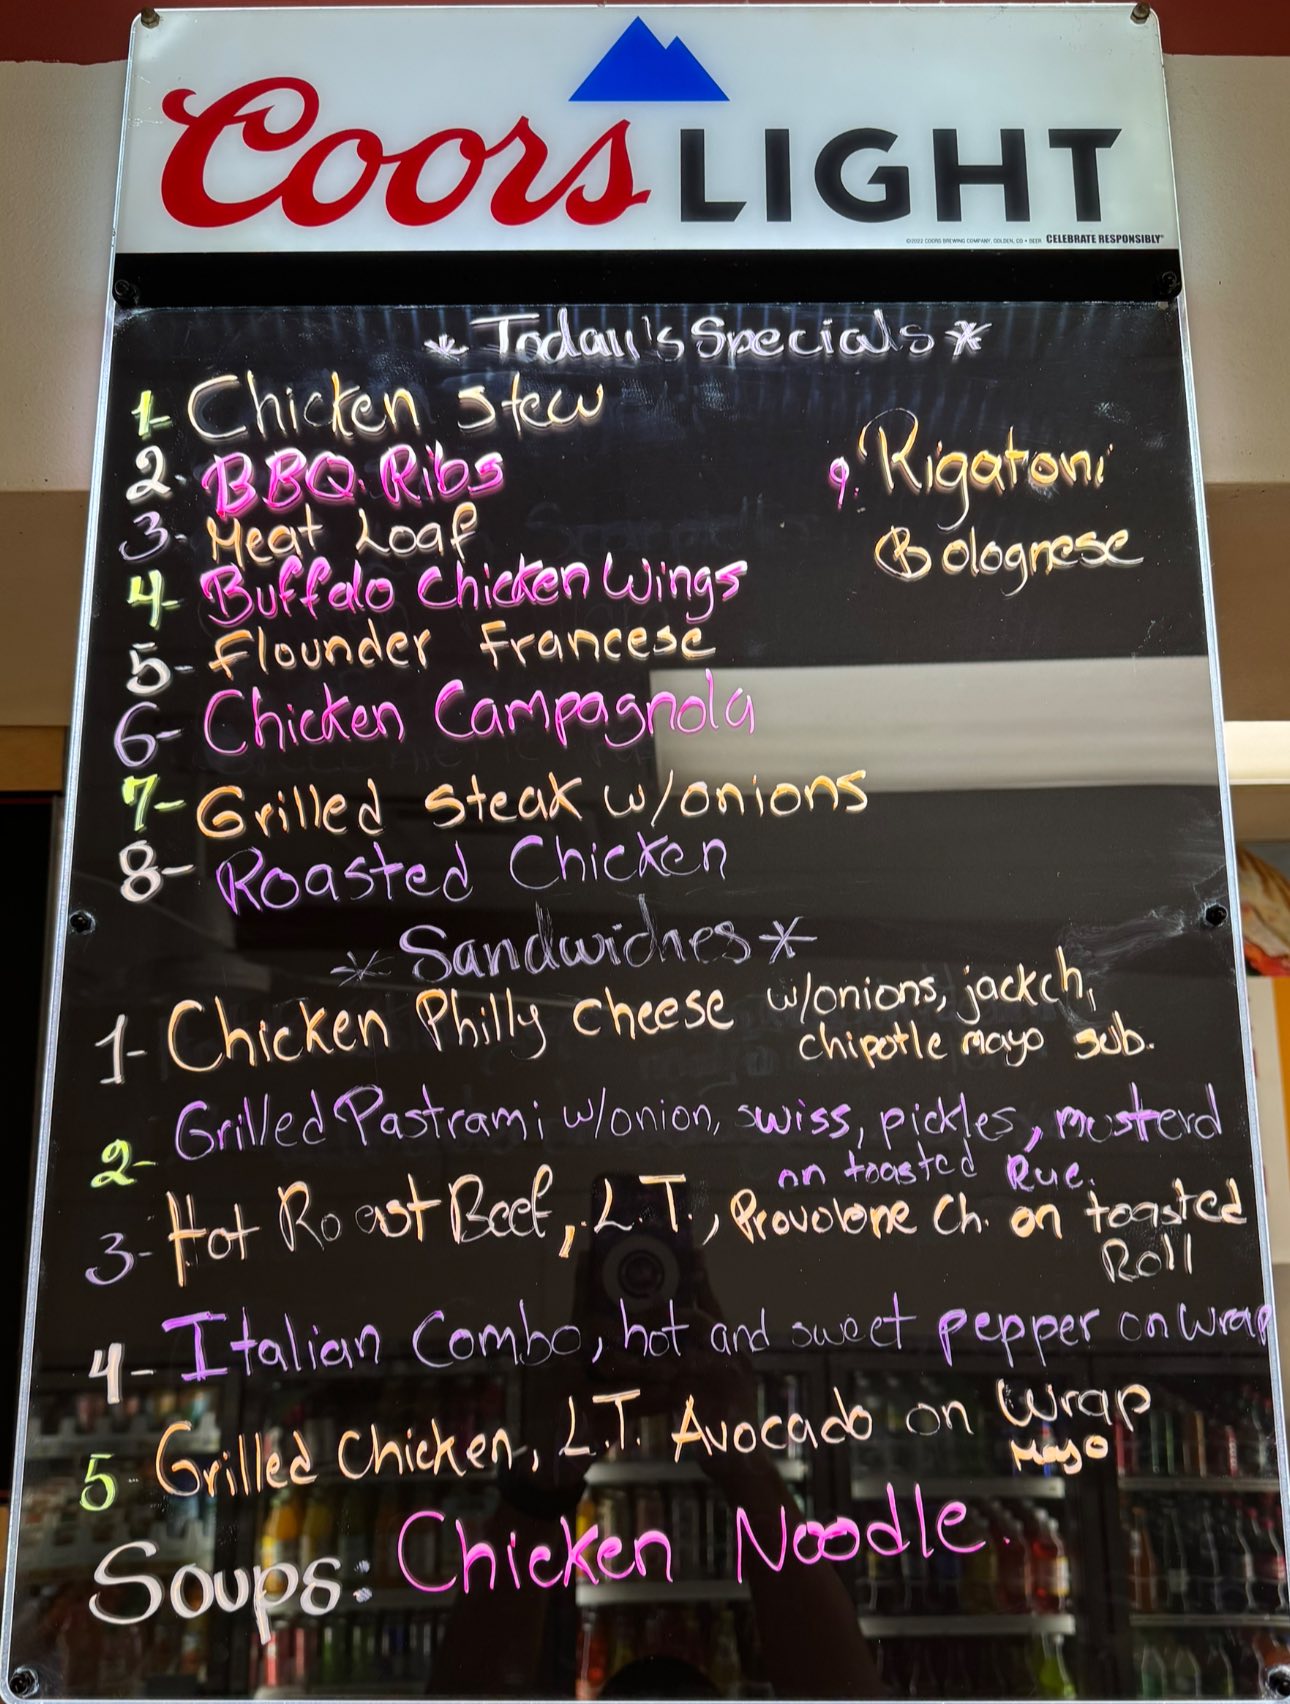 Coors LIGHT
©2022 COORS BREWING COMPANY, GOLDEN, CO • BEER CELEBRATE RESPONSIBLY®
* Today's Specials *
1- Chicken Stew
2- BBQ Ribs
3- Meat Loaf
4- Buffalo Chicken Wings
5- Flounder Francese
6- Chicken Campagnola
7- Grilled Steak w/onions
8- Roasted Chicken
9. Rigatoni
Bolognese
* Sandwiches *
1- Chicken Philly Cheese w/onions, jack ch,
chipotle mayo sub.
2- Grilled Pastrami w/onion, swiss, pickles, musterd
on toasted Rye.
3- Hot Roast Beef, L.T., Provolone Ch. on toasted
Roll
4- Italian Combo, hot and sweet pepper on wrap
5- Grilled Chicken, L.T. Avocado on Wrap
Mayo
Soups: Chicken Noodle.